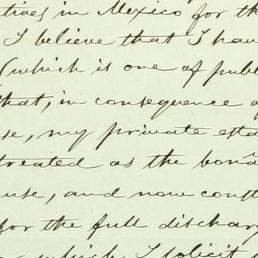 tives in Mexico for the
I believe that I hav
(which is one of publ
that, in consequence o
se, my private esta
treated as the bonâ
use, and now conti
for the full discharg
which I solicit